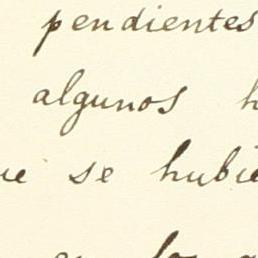 pendientes
algunos h
ue se hubie